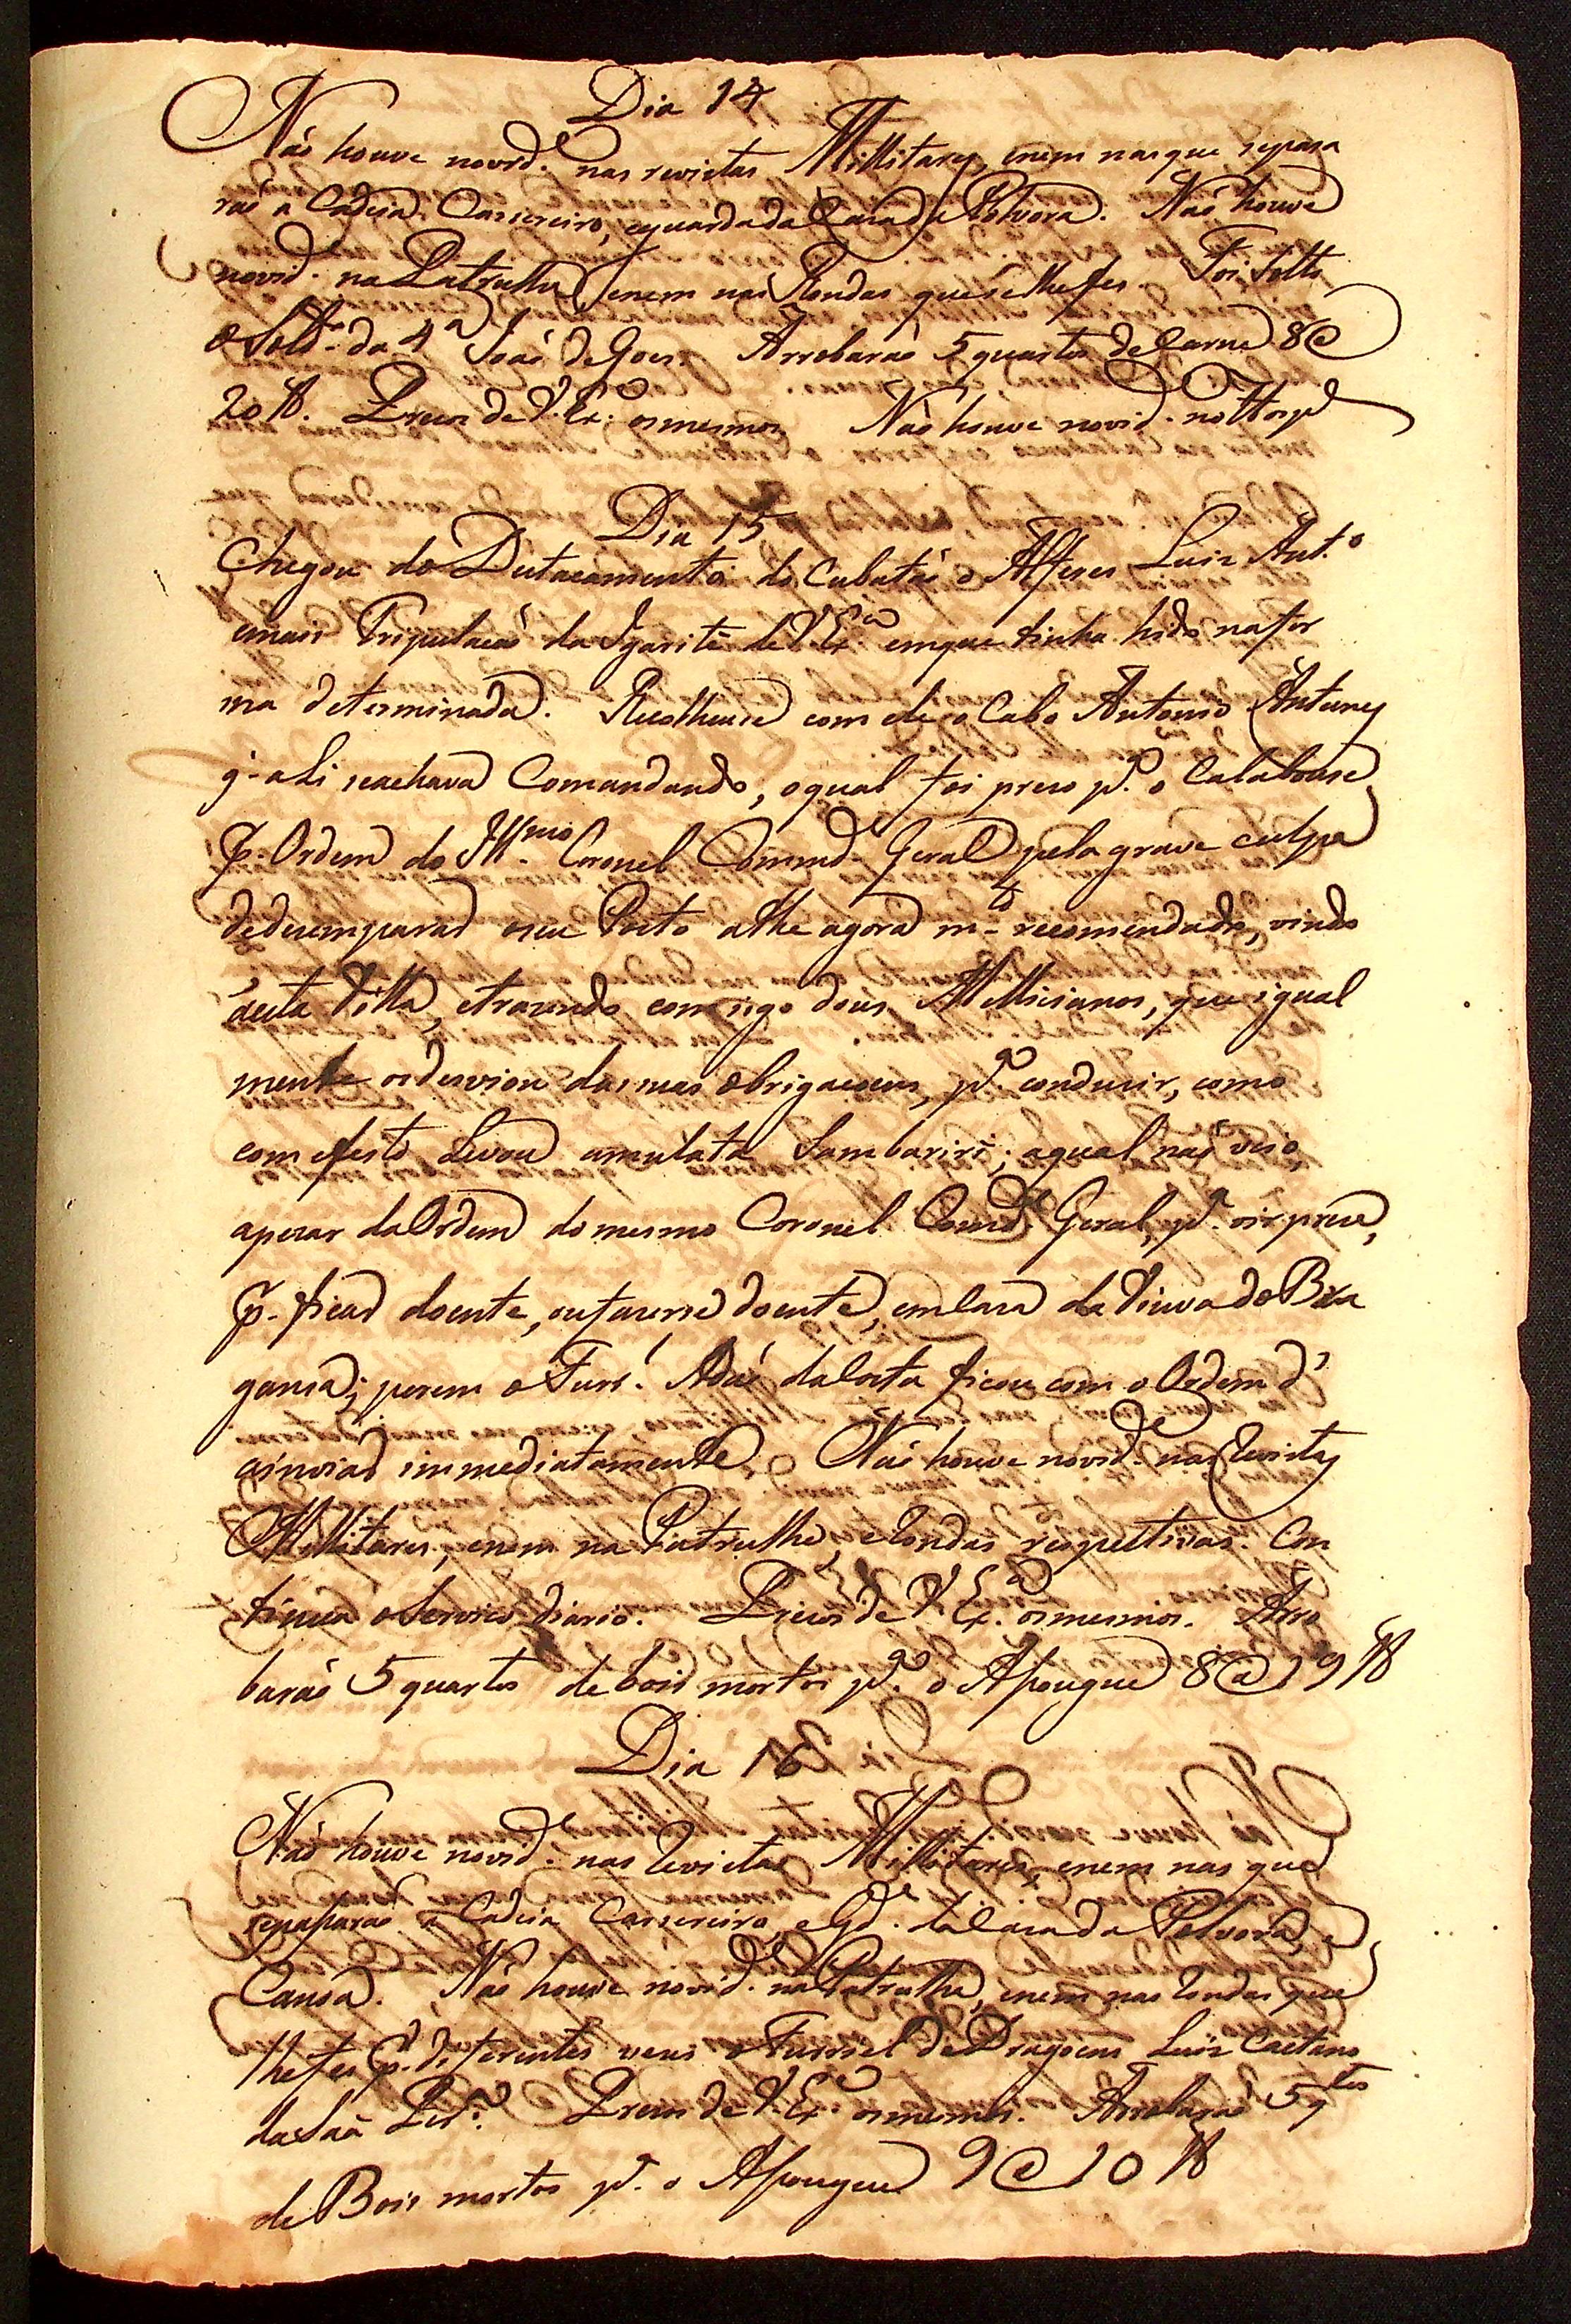 Dia 14
Não houve novid.e nas revistas Millitares, enem nasque sepasa
rão a Cadeia Carsereiro, eguardada Casa da Polvora. Não houve
novid.e na Patrulha, enem nas Rondas queselhefes. Foi solto
o Sold.o da 4ª João de Goes. Arrobarão 5 quartos de Carne 8@
20 ℔. Prezos de V. Ex.a osmesmos. Não houve novid.e no Hosp.l
Dia 15
Chegou do Destacamento do Cubatão o Alferes Luiz Ant.o
emais Tripulacaõ da Igarité de V. Ex.a emque tinha hido nafor
ma determinada. Recolheuse com ele o Cabo Antonio Antunes
q. ali seachava Comandando, oqual foi preso p.a o Calabouse
p. Ordem do Ill.mo Coronel Comand.e Geral pela grave culpa
dedesemparar oseu Posto athe agora m.to recomendado, vindo
áesta Villa, etrazendo comsigo dous Millicianos, que igual
mente osdesviou dassuas obrigacoens, p.a conduzir, como
com efeito Levou amulata Sambariri; aqual não veio,
apezar daOrdem domesmo Coronel Comd.e Geral, p.a vir preza,
p. ficar doente, oufazerse doente, emCasa da Viuva do Bra
gansa; porem o Furr.l Adaó daCosta ficou com a Ordem d'
aenviar immediatamente. Não houve novid.e nas Revistas
Millitares, enem na Patrulha, eRondas respectivas. Con
tinua oServico diario. Prezos de V. Ex.a osmesmos. Arro
barão 5 quartos de bois mortos p.a o Asougue 8@19 ℔
Dia 16
Não houve novid.e nas Revistas Millitares, enem nas que
sepasarão a Cadeia Carsereiro, e G.de da Casa da Polvora, e
Canoa. Não houve novid.e na Patrulha, enem nas Rondas que
lhefes p. diferentes vezes o Furriel de Dragoens Luiz Caetano
da Sàa Per.a Prezos de V. Ex.a osmesmos. Arrobarão 5 q.tos
de Bois mortos p.a o Asougue 9@10 ℔